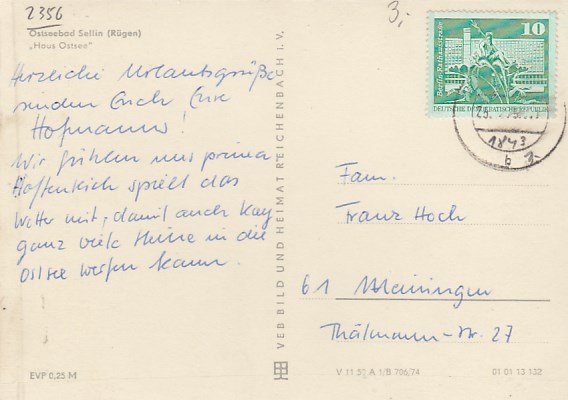 2356
Ostseebad Sellin (Rügen)
„Haus Ostsee"
Herzliche Urlaubsgrüße
senden Euch Eure
Hofmanns!
Wir fühlen uns prima
Hoffentlich spielt das
Wetter mit, damit auch Kay
ganz viele Steine in die
Ostsee werfen kann.
EVP 0,25 M
VEB BILD UND HEIMAT REICHENBACH I. V.
3,-
10
Berlin, Rathausstraße
DEUTSCHE DEMOKRATISCHE REPUBLIK
Fam.
Franz Hoch
61 Meiningen
Thälmann-Str. 27
V 11 50 A 1/B 706/74
01 01 13 132